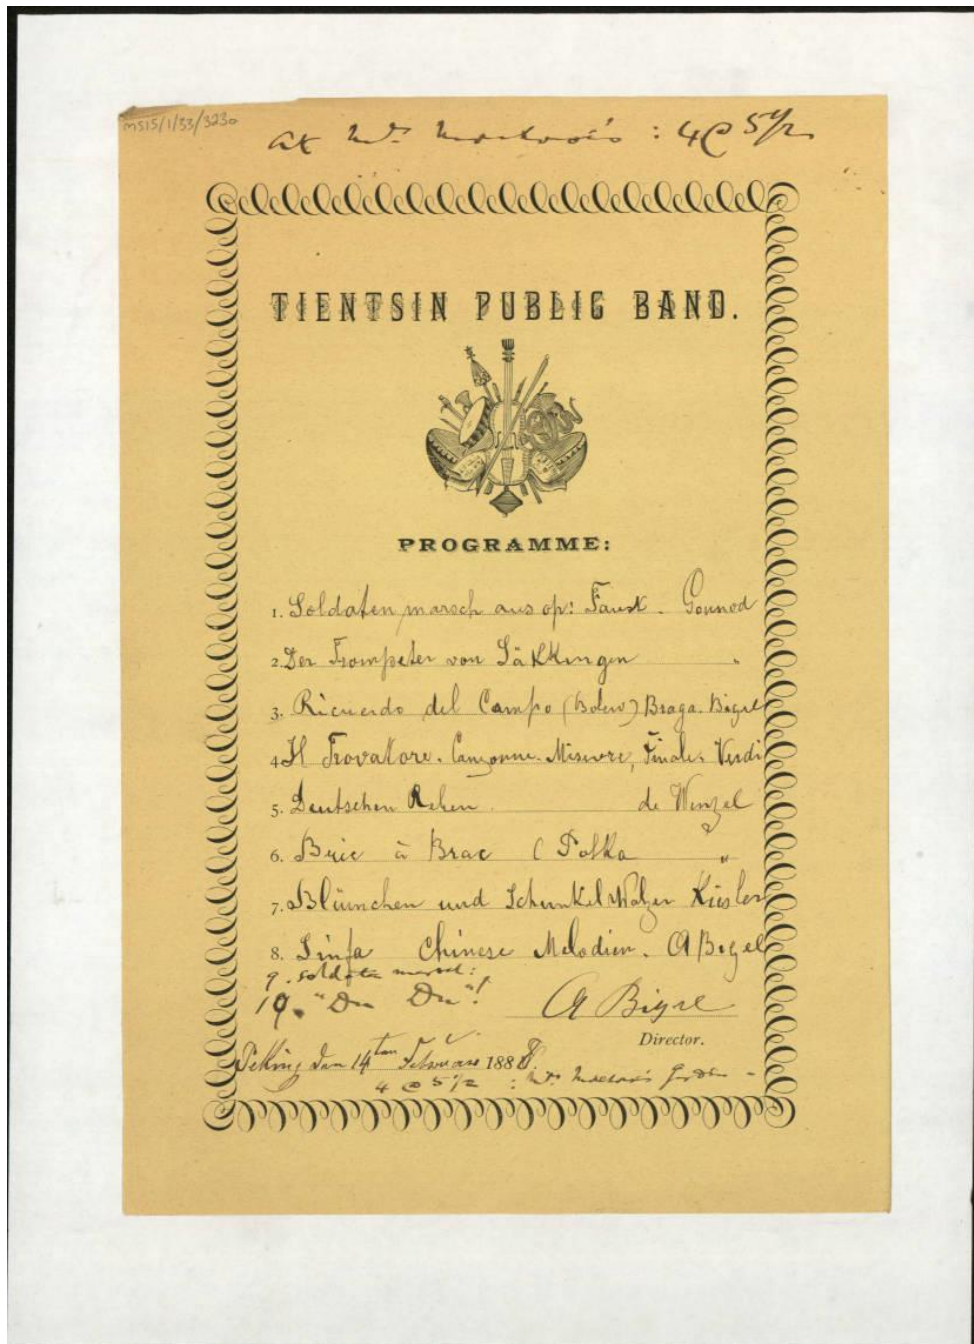 MS15/1/33/3230
At Mrs : 4 @ 5 1/2
TIENTSIN PUBLIC BAND.
PROGRAMME:
1. Soldaten marsch aus op: Faust. Gounod
2. Der Trompeter von Säkkingen "
3. Ricuerdo del Campo (Bolero) Braga. Bigel
4. Il Trovatore. Canzonne. Miserere, Finale. Verdi
5. Deutschen Reben. de Wenzel
6. Bric à Brac ( Polka "
7. Blümchen und Schunkel Walzer
8. Sinfa Chinese Melodien. A Bigel
9. soldaten marsch:
10. "Du Du"!
A Bigel
Director.
Peking den 14ten Februar 1888.
4 @ 5 1/2 : Mrs